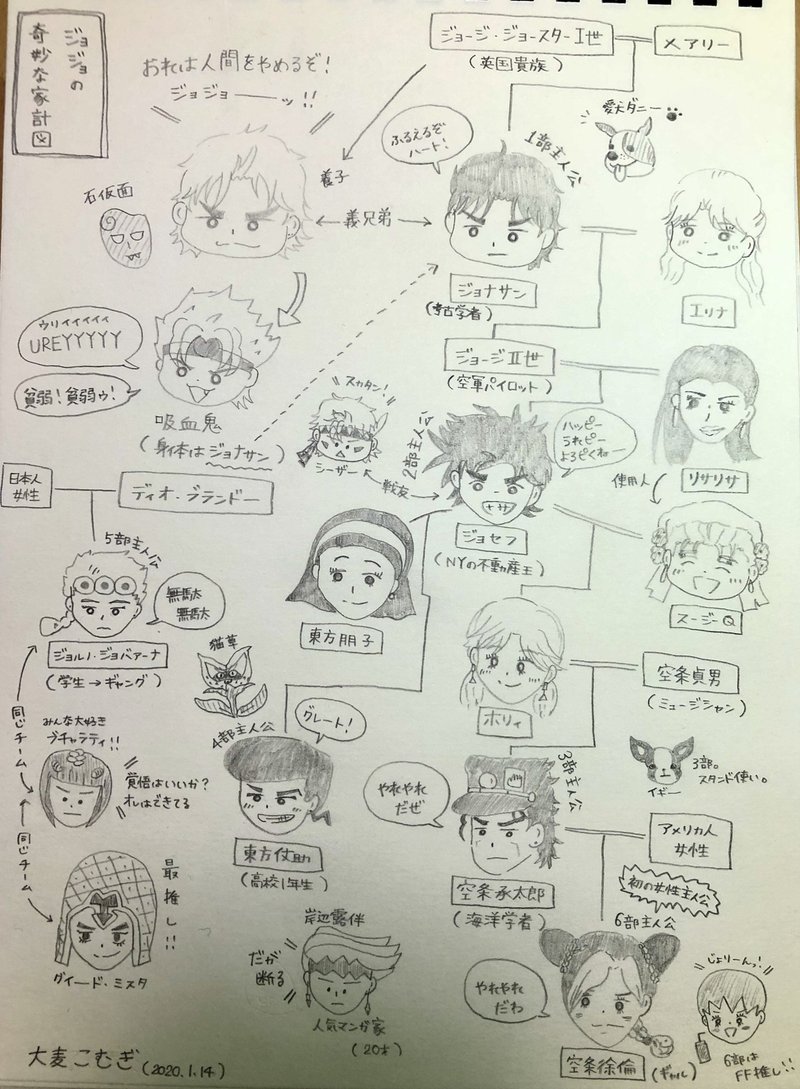 ジョジョの
奇妙な家計図
おれは人間をやめるぞ!
ジョジョ――ッ!!
ジョージ・ジョースターI世
(英国貴族)
メアリー
愛犬ダニー
ふるえるぞ
ハート!
1部主人公
養子
石仮面
義兄弟
ジョナサン
(考古学者)
エリナ
ウリィィィィィ
UREYYYYY
貧弱!貧弱ゥ!
吸血鬼
(身体はジョナサン)
ジョージII世
(空軍パイロット)
スカタン!
シーザー
戦友
2部主人公
ハッピー
うれピー
よろピくねー
使用人
リサリサ
日本人
女性
ディオ・ブランドー
ジョセフ
(NYの不動産王)
スージーQ
5部主人公
無駄
無駄
ジョルノ・ジョバァーナ
(学生→ギャング)
東方朋子
猫草
ホリィ
空条貞男
(ミュージシャン)
同じチーム
みんな大好き
ブチャラティ!!
覚悟はいいか?
オレはできてる
4部主人公
グレート!
東方仗助
(高校1年生)
やれやれ
だぜ
3部主人公
空条承太郎
(海洋学者)
3部。
スタンド使い。
イギー
アメリカ人
女性
初の女性主人公
6部主人公
同じチーム
最推し!!
グイード・ミスタ
岸辺露伴
だが
断る
人気マンガ家
(20才)
やれやれ
だわ
空条徐倫
(ギャル)
じょりーんっ!
6部は
FF推し!!
大麦こむぎ(2020.1.14)